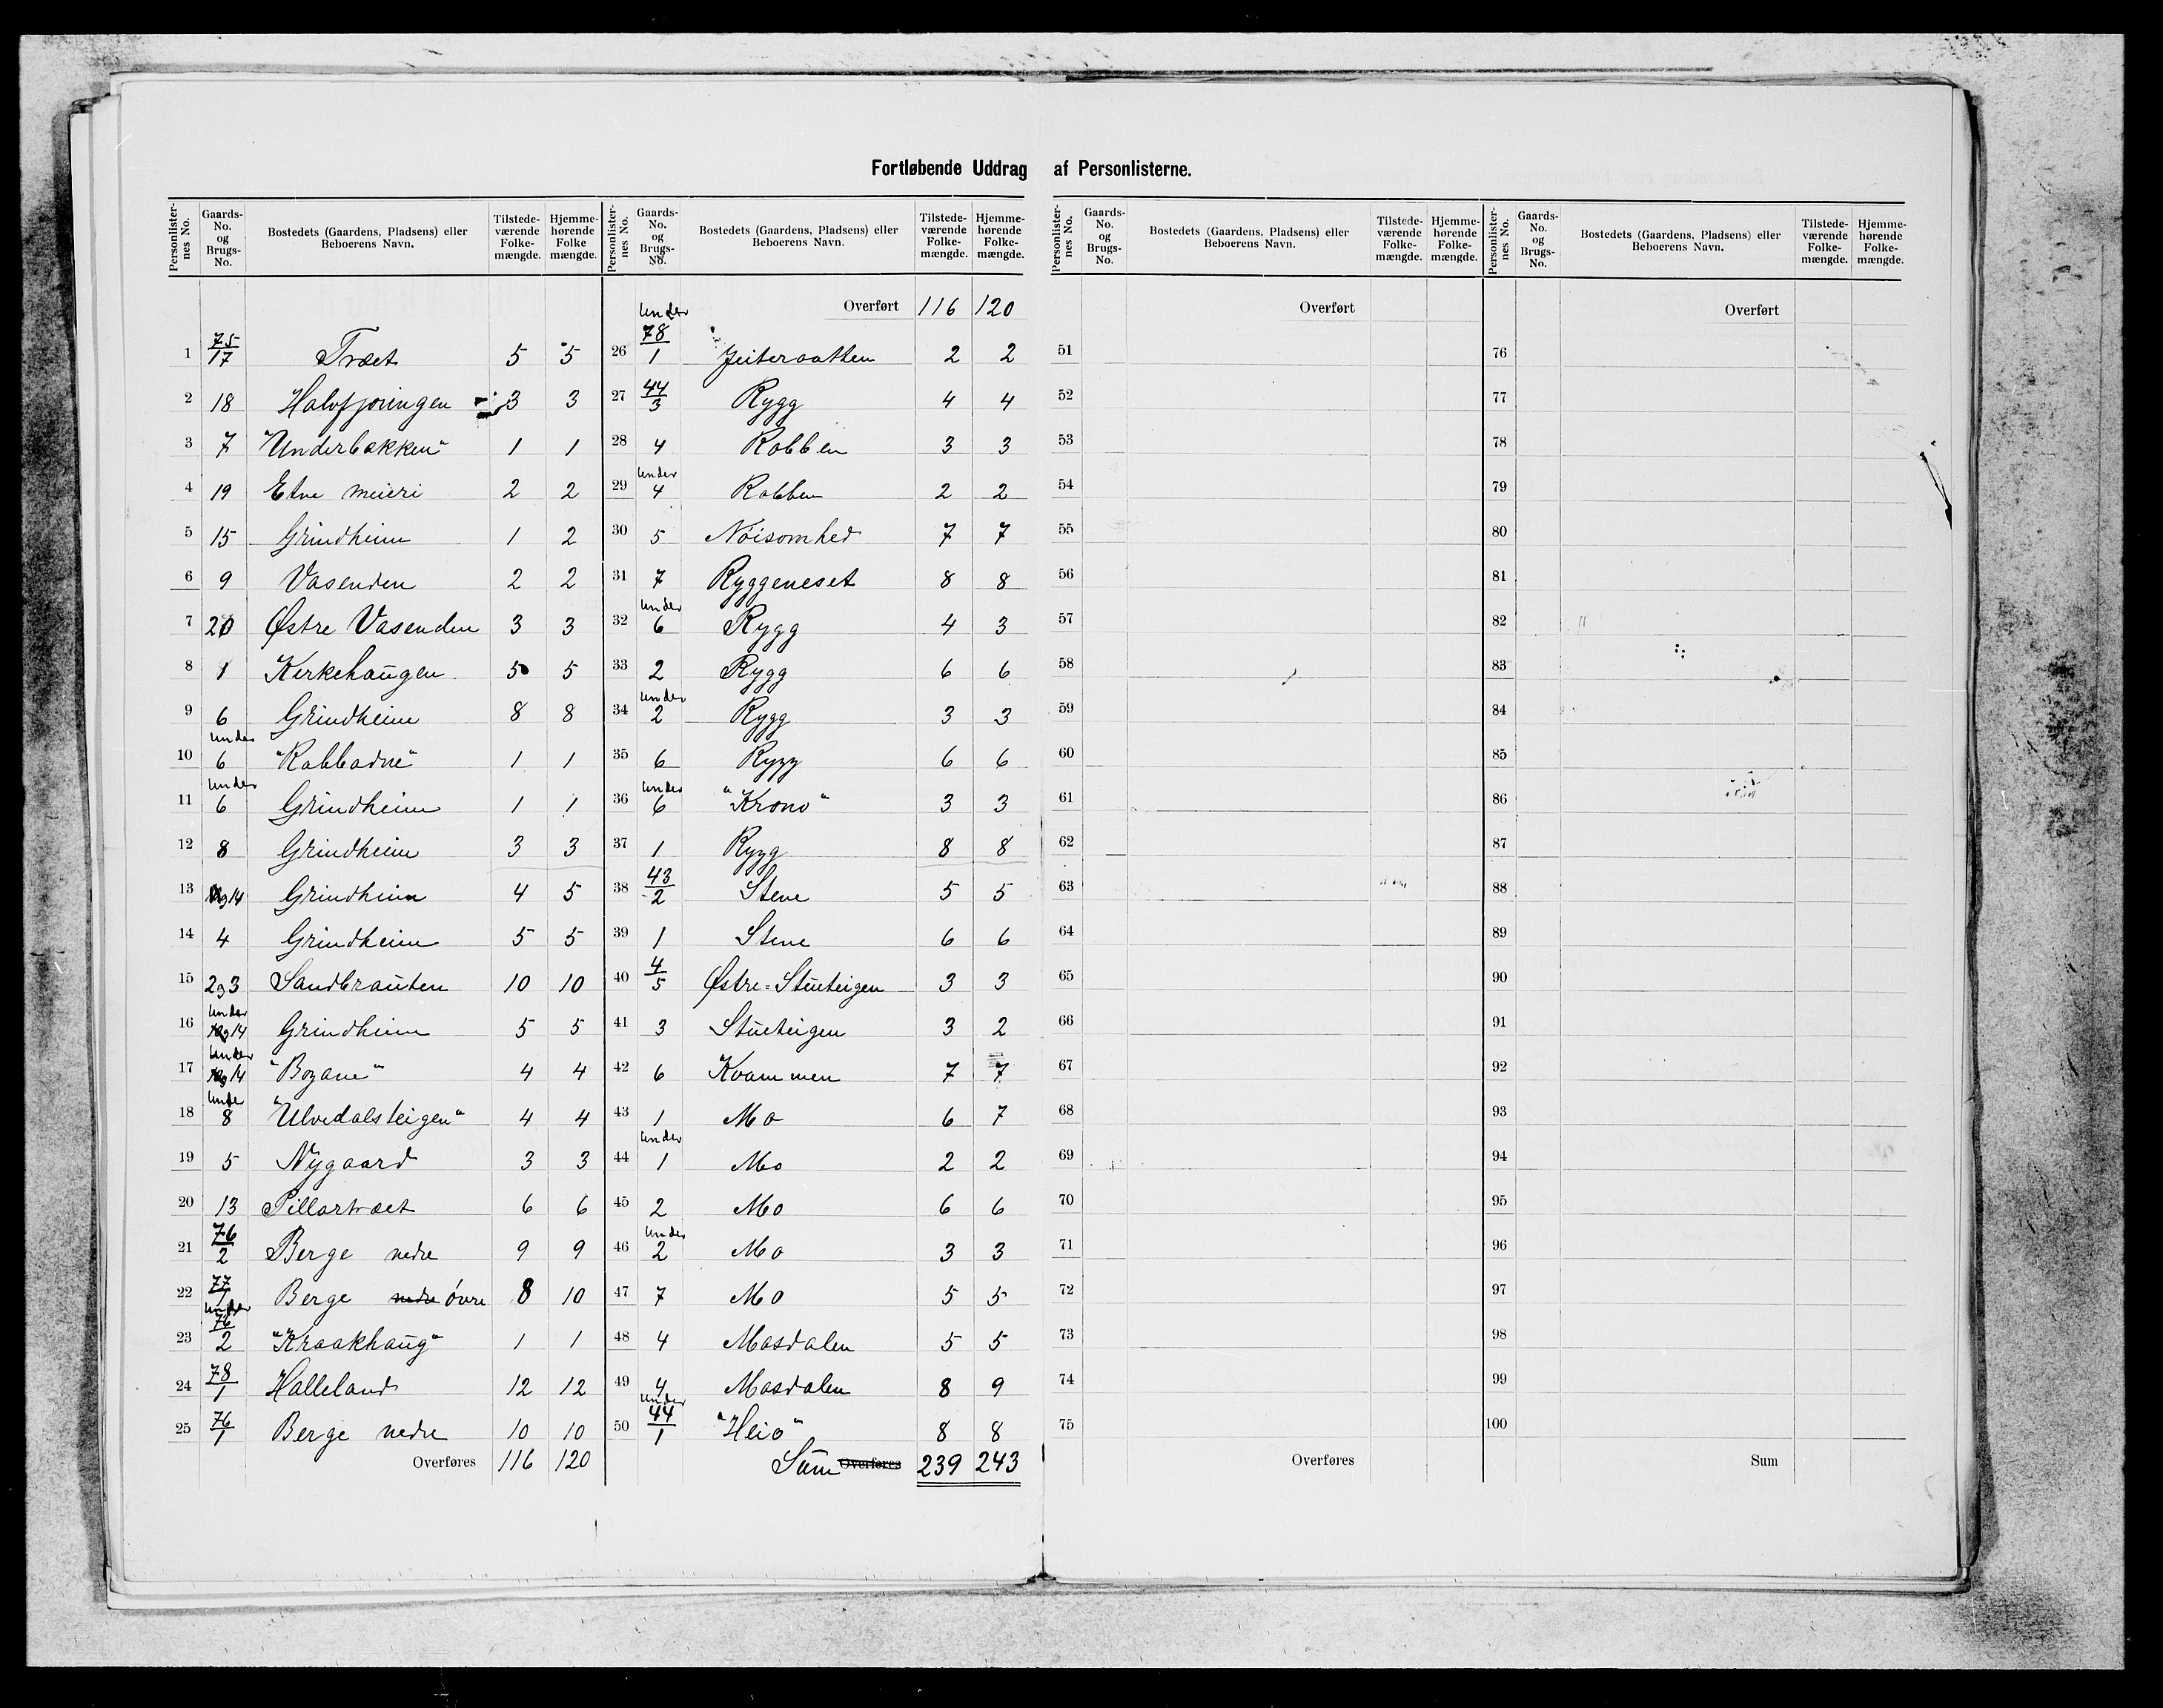 Fortløbende Uddrag af Personlisterne.
Personlisternes No. Gaards-No. og Brugs-No. Bostedets (Gaardens, Pladsens) eller Beboerens Navn. Tilstedeværende Folkemængde. Hjemmehørende Folkemængde.
1 75/17 Træet 5 5
2 18 Halvfjoringen 3 3
3 7 "Underbakken" 1 1
4 19 Etne meieri 2 2
5 15 Grindheim 1 2
6 9 Vasenden 2 2
7 20 Østre Vasenden 3 3
8 1 Kirkehaugen 5 5
9 6 Grindheim 8 8
10 Under 6 "Rabbadne" 1 1
11 Under 6 Grindheim 1 1
12 8 Grindheim 3 3
13 14 Grindheim 4 5
14 4 Grindheim 5 5
15 2 g 3 Sandbrauten 10 10
16 Under 14 Grindheim 5 5
17 Under 14 4 4
18 Under 8 "Ulvedalsteigen" 4 4
19 5 Nygaard 3 3
20 13 Pillartræet 6 6
21 76/2 Berge nedre 9 9
22 77/1 Berge nedre övre 8 10
23 Under 76/2 "Kraakhaug" 1 1
24 78/1 Halleland 12 12
25 76/1 Berge nedre 10 10
Overføres 116 120
Overført 116 120
26 Under 78/1 2 2
27 44/3 Rygg 4 4
28 4 Rabben 3 3
29 Under 4 Rabben 2 2
30 5 Nöisomhed 7 7
31 7 Ryggeneset 8 8
32 Under 6 Rygg 4 3
33 2 Rygg 6 6
34 Under 2 Rygg 3 3
35 6 Rygg 6 6
36 Under 6 "Krono" 3 3
37 1 Rygg 8 8
38 43/2 Stene 5 5
39 1 Stene 6 6
40 4/5 Østre-Stueteigen 3 3
41 3 Stueteigen 3 2
42 6 Kvammen 7 7
43 1 Mo 6 7
44 Under 1 Mo 2 2
45 2 Mo 6 6
46 Under 2 Mo 3 3
47 7 Mo 5 5
48 4 Mosdalen 5 5
49 4 Mosdalen 8 9
50 Under 44/1 "Heio" 8 8
Sum Overføres 239 243
Personlisternes No. Gaards-No. og Brugs-No. Bostedets (Gaardens, Pladsens) eller Beboerens Navn. Tilstedeværende Folkemængde. Hjemmehørende Folkemængde.
Overført
51
52
53
54
55
56
57
58
59
60
61
62
63
64
65
66
67
68
69
70
71
72
73
74
75
Overføres
Overført
76
77
78
79
80
81
82
83
84
85
86
87
88
89
90
91
92
93
94
95
96
97
98
99
100
Sum